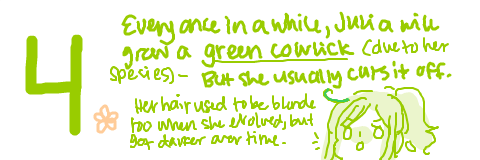 4
Every once in a while, Julia will
grow a green cowlick (due to her
species) - But she usually cuts it off.
Her hair used to be blonde
too when she evolved, but
got darker over time.